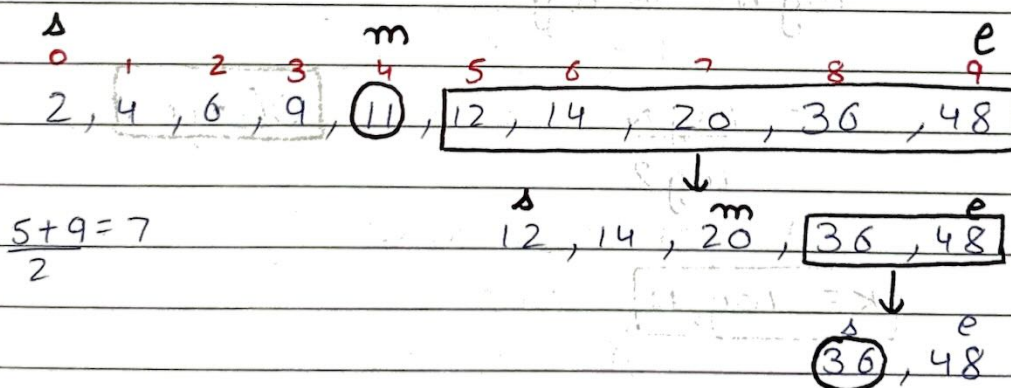 s m e
0 1 2 3 4 5 6 7 8 9
2, 4, 6, 9, 11, 12, 14, 20, 36, 48
s m e
5+9 = 7 12, 14, 20, 36, 48
2
s e
36, 48